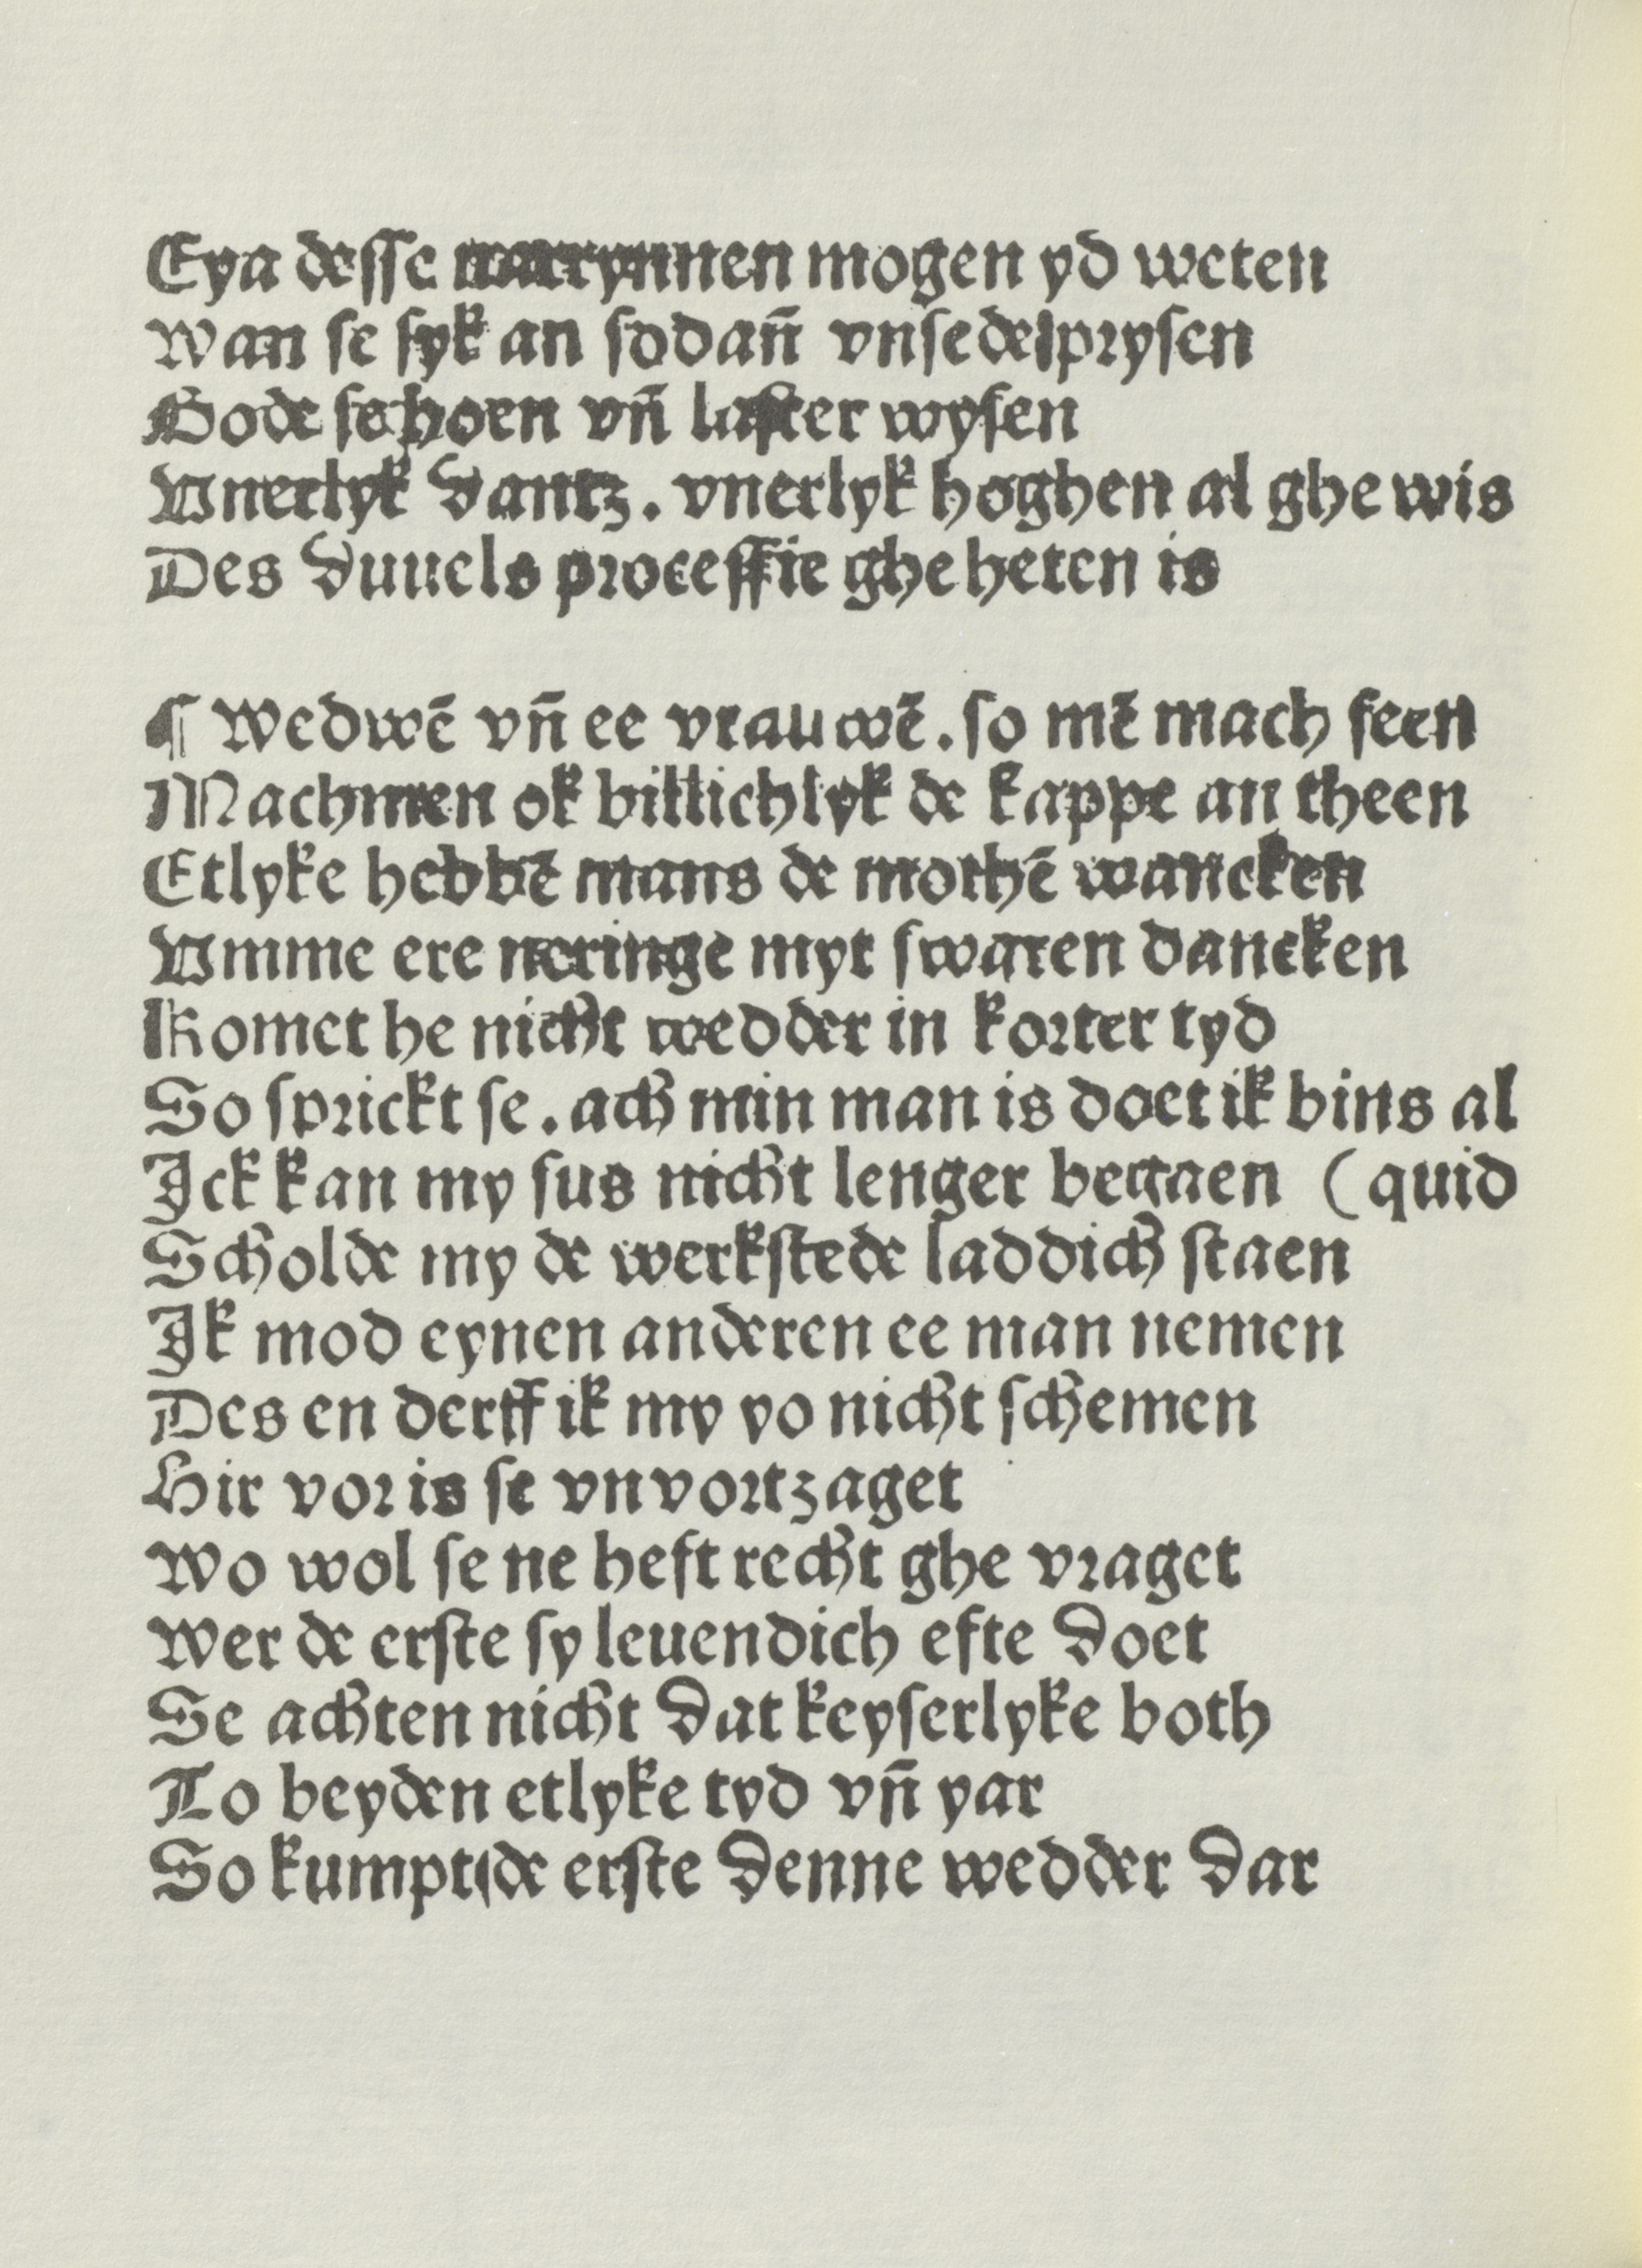 Eya desse narrynnen mogen yd weten
Wan se syk an sodan̄ vnsede prysen
Gode to hoen vn̄ laster wysen
Vnerlyk dantz. vnerlyk hoghen al ghe wis
Des duuels processie ghe heten is
¶ Wedwē vn̄ ee vrauwē. so mē mach seen
Machmen ok billichlyk de kappe an theen
Etlyke hebbē mans de mothē wancken
Vmme ere neringe myt swaren dancken
Komet he nicht wedder in korter tyd
So sprickt se. ach min man is doet ik bins al
Ick kan my sus nicht lenger begaen (quid
Scholde my de werkstede laddich staen
Ik mod eynen anderen ee man nemen
Des en derff ik my yo nicht schemen
Hir vor is se vnvortzaget
Wo wol se ne heft recht ghe vraget
Wer de erste sy leuendich efte doet
Se achten nicht dat keyserlyke both
To beyden etlyke tyd vn̄ yar
So kumpt de erste denne wedder dar